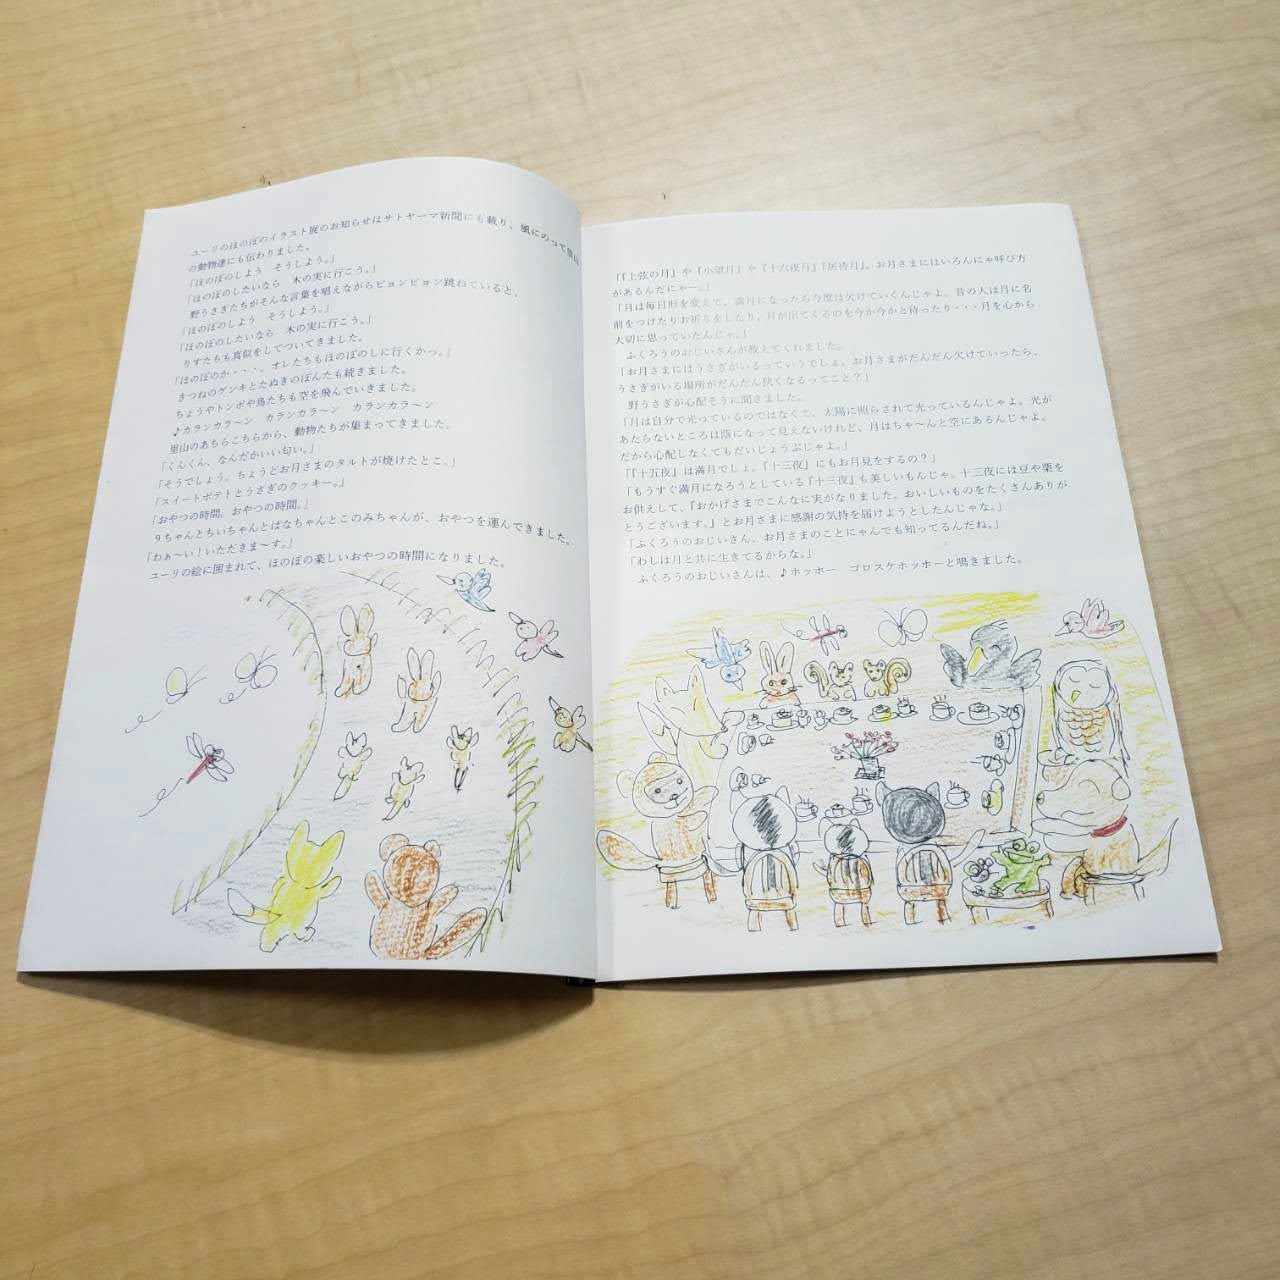 ユーリのほのぼのイラスト展のお知らせはサトヤーマ新聞にも載り、風にのって
の動物達にも伝わりました。
「ほのぼのしよう　そうしよう。」
「ほのぼのしたいなら　木の実に行こう。」
野うさぎたちがそんな言葉を唱えながらピョンピョン跳ねていると、
「ほのぼのしよう　そうしよう。」
「ほのぼのしたいなら　木の実に行こう。」
りすたちも真似をしてついてきました。
「ほのぼのか・・・、オレたちもほのぼのしに行くかっ。」
きつねのゲンキとたぬきのぽんたも続きました。
ちょうやトンボや鳥たちも空を飛んでいきました。
♪カランカラ〜ン　カランカラ〜ン
里山のあちらこちらから、動物たちが集まってきました。
「くんくん、なんだかいい匂い。」
「そうでしょう。ちょうどお月さまのタルトが焼けたとこ。」
「スイートポテトとうさぎのクッキー。」
「おやつの時間。おやつの時間。」
９ちゃんとちいちゃんとはなちゃんとこのみちゃんが、おやつを運んできました。
「わぁ〜い！いただきま〜す。」
ユーリの絵に囲まれて、ほのぼの楽しいおやつの時間になりました。
「『上弦の月』や『小望月』や『十六夜月』『居待月』。お月さまにはいろんにゃ呼び方
があるんだにゃー。」
「月は毎日形を変えて、満月になったら今度は欠けていくんじゃよ。昔の人は月に名
前をつけたりお祈りをしたり、月が出てくるのを今か今かと待ったり・・・月を心から
大切に思っていたんじゃ。」
ふくろうのおじいさんが教えてくれました。
「お月さまにはうさぎがいるっていうでしょ。お月さまがだんだん欠けていったら、
うさぎがいる場所がだんだん狭くなるってこと？」
野うさぎが心配そうに聞きました。
「月は自分で光っているのではなくて、太陽に照らされて光っているんじゃよ。光が
あたらないところは陰になって見えないけれど、月はちゃ〜んと空にあるんじゃよ。
だから心配しなくてもだいじょうぶじゃよ。」
「『十五夜』は満月でしょ。『十三夜』にもお月見をするの？」
「もうすぐ満月になろうとしている『十三夜』も美しいもんじゃ。十三夜には豆や栗を
お供えして、『おかげさまでこんなに実がなりました。おいしいものをたくさんありが
とうございます。』とお月さまに感謝の気持を届けようとしたんじゃな。」
「ふくろうのおじいさん、お月さまのことにゃんでも知ってるんだね。」
「わしは月と共に生きてるからな。」
ふくろうのおじいさんは、♪ホッホー　ゴロスケホッホーと鳴きました。